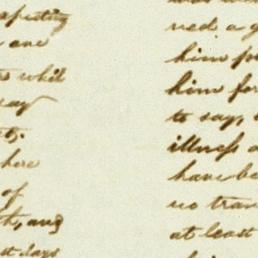 one
whil
say
here
of
th, and
st days
ved a g
him for
him for
to say,
illness a
have be
no tran
at least